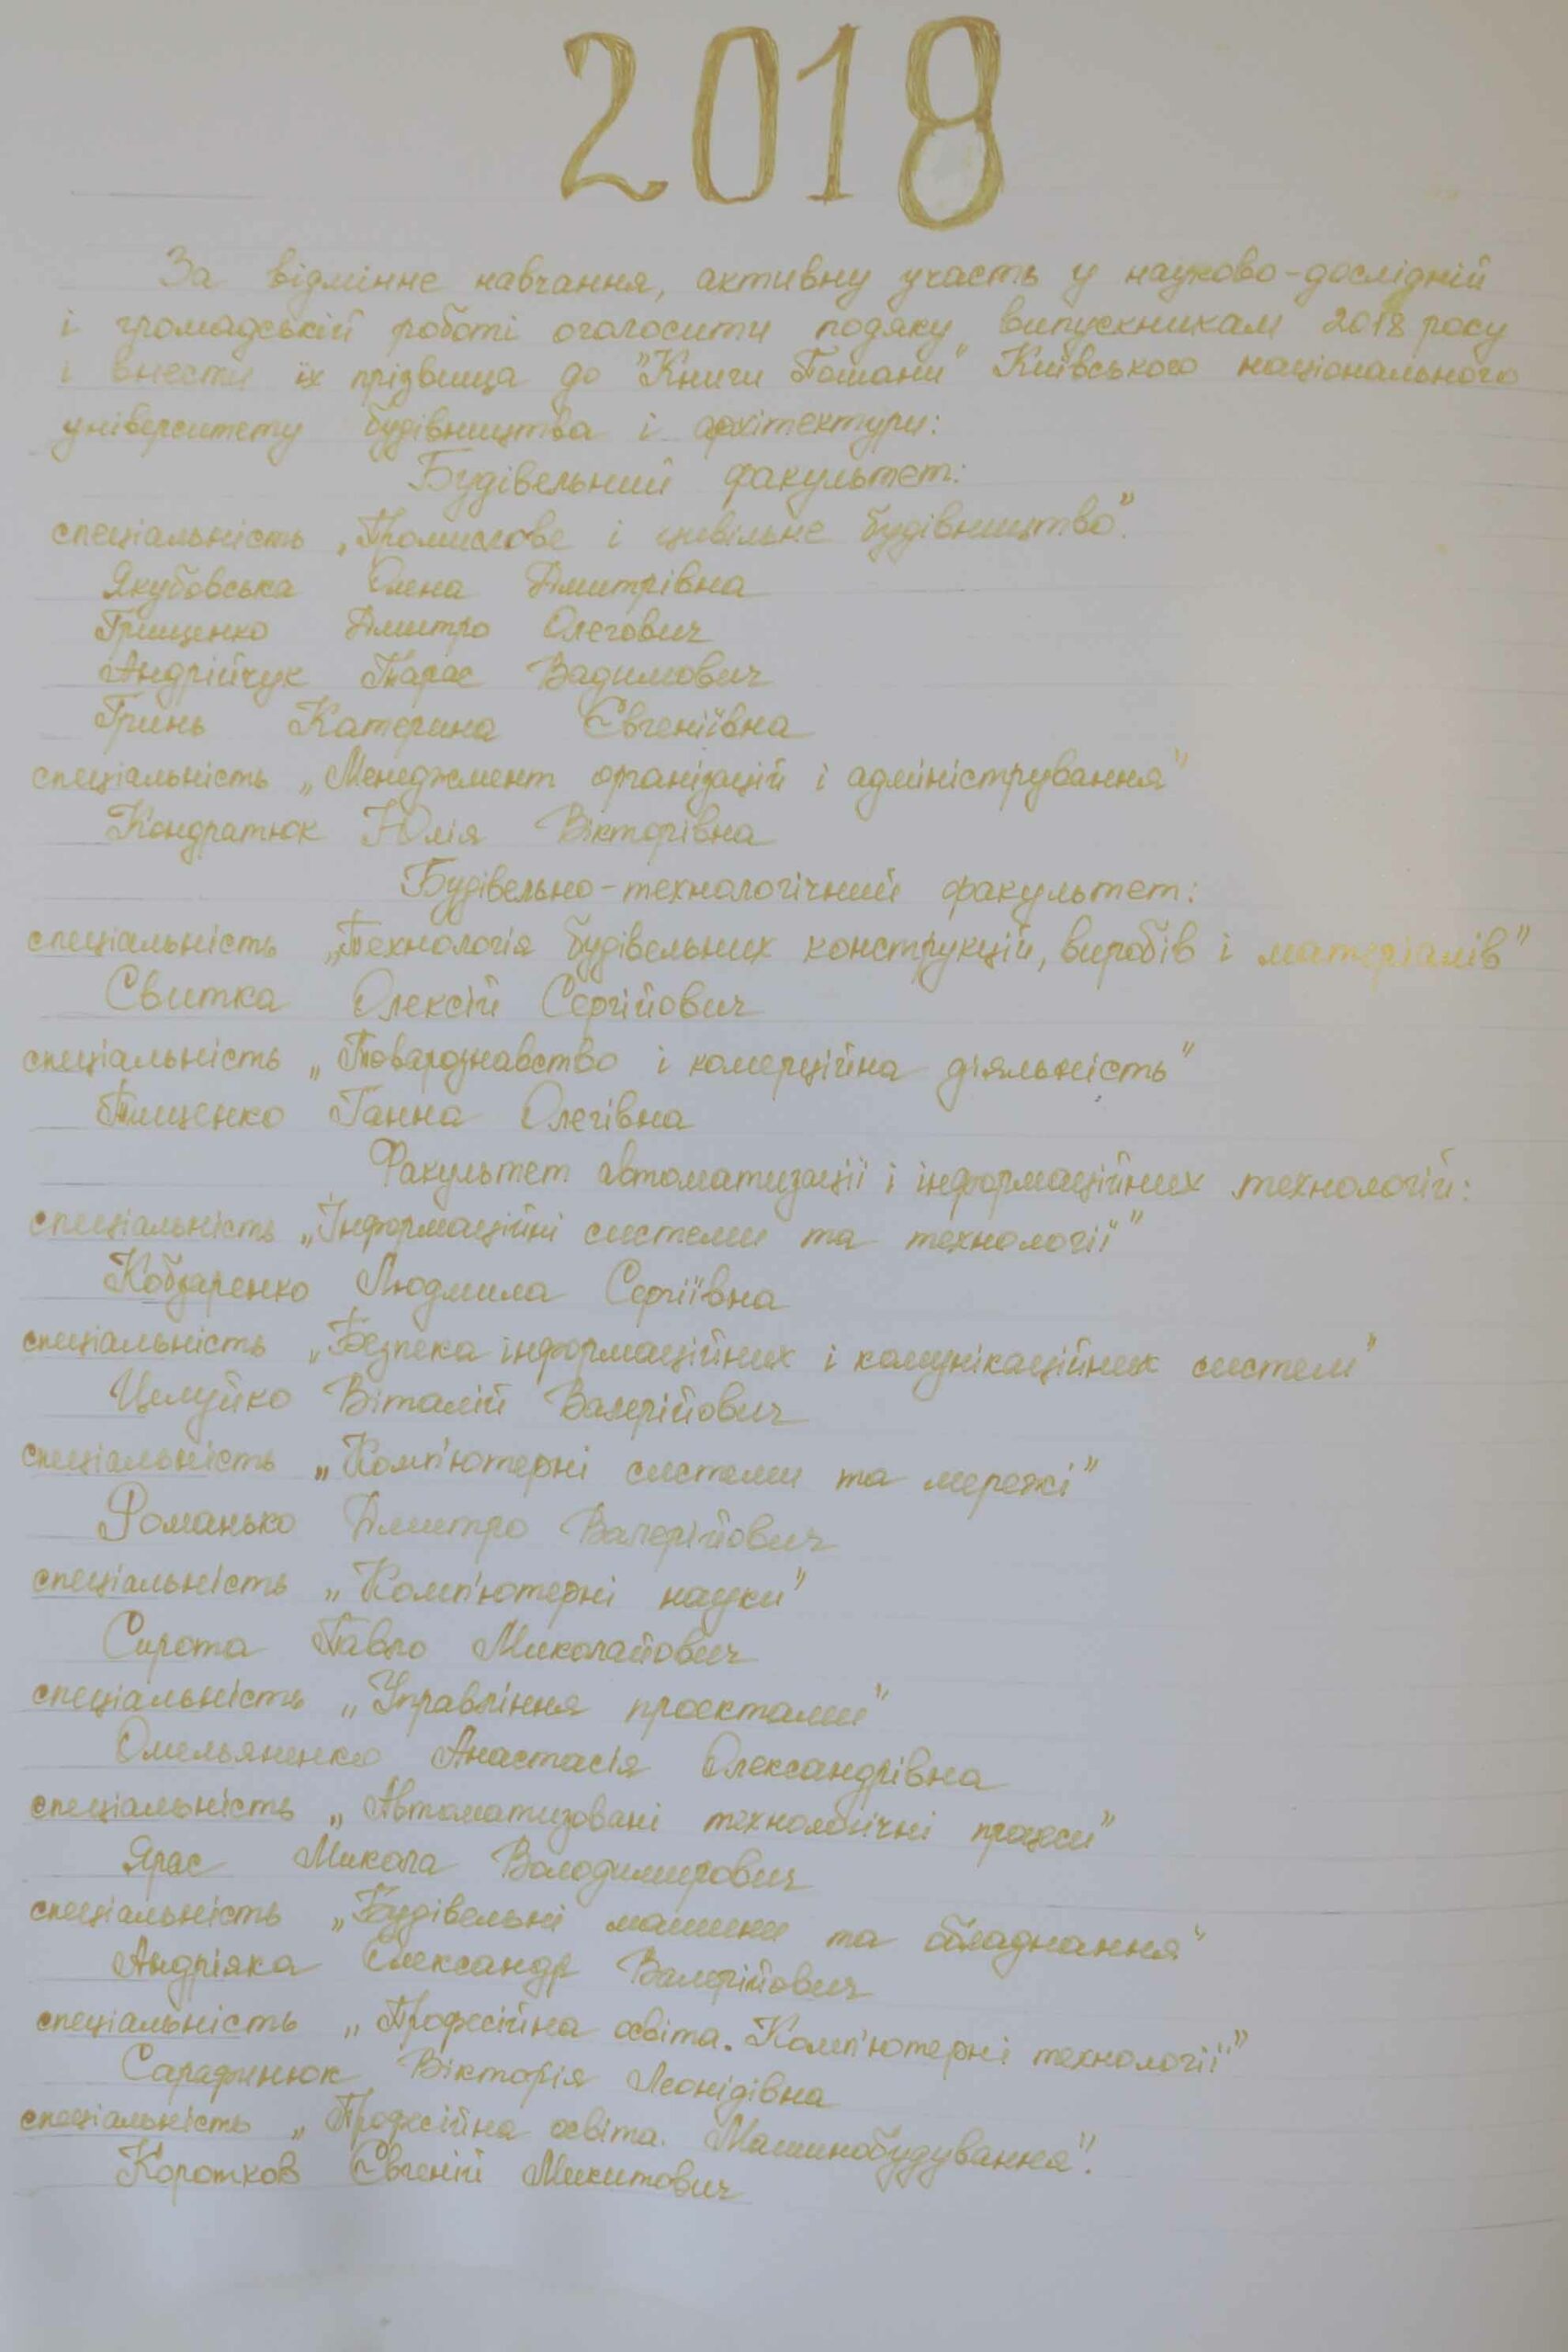 2018
За відмінне навчання, активну участь у науково-дослідній
і громадській роботі оголосити подяку випускникам 2018 року
і внести їх прізвища до "Книги Пошани" Київського національного
університету будівництва і архітектури:
Будівельний факультет:
спеціальність „Промислове і цивільне будівництво".
Якубовська Олена Дмитрівна
Грищенко Дмитро Олегович
Андрійчук Тарас Вадимович
Гринь Катерина Євгеніївна
спеціальність „Менеджмент організацій і адміністрування"
Кондратюк Юлія Вікторівна
Будівельно-технологічний факультет:
спеціальність „Технологія будівельних конструкцій, виробів і матеріалів"
Свитка Олексій Сергійович
спеціальність „Товарознавство і комерційна діяльність"
Тищенко Ганна Олегівна
Факультет автоматизації і інформаційних технологій:
спеціальність „Інформаційні системи та технології"
Кобзаренко Людмила Сергіївна
спеціальність „Безпека інформаційних і комунікаційних систем"
Целуйко Віталій Валерійович
спеціальність „Комп'ютерні системи та мережі"
Романько Дмитро Валерійович
спеціальність „Комп'ютерні науки"
Сирота Павло Миколайович
спеціальність „Управління проектами"
Омельяненко Анастасія Олександрівна
спеціальність „Автоматизовані технологічні процеси"
Ярас Микола Володимирович
спеціальність „Будівельні машини та обладнання"
Андріяка Олександр Валерійович
спеціальність „Професійна освіта. Комп'ютерні технології"
Вікторія Леонідівна
спеціальність „Професійна освіта. Машинобудування".
Коротков Євгеній Микитович